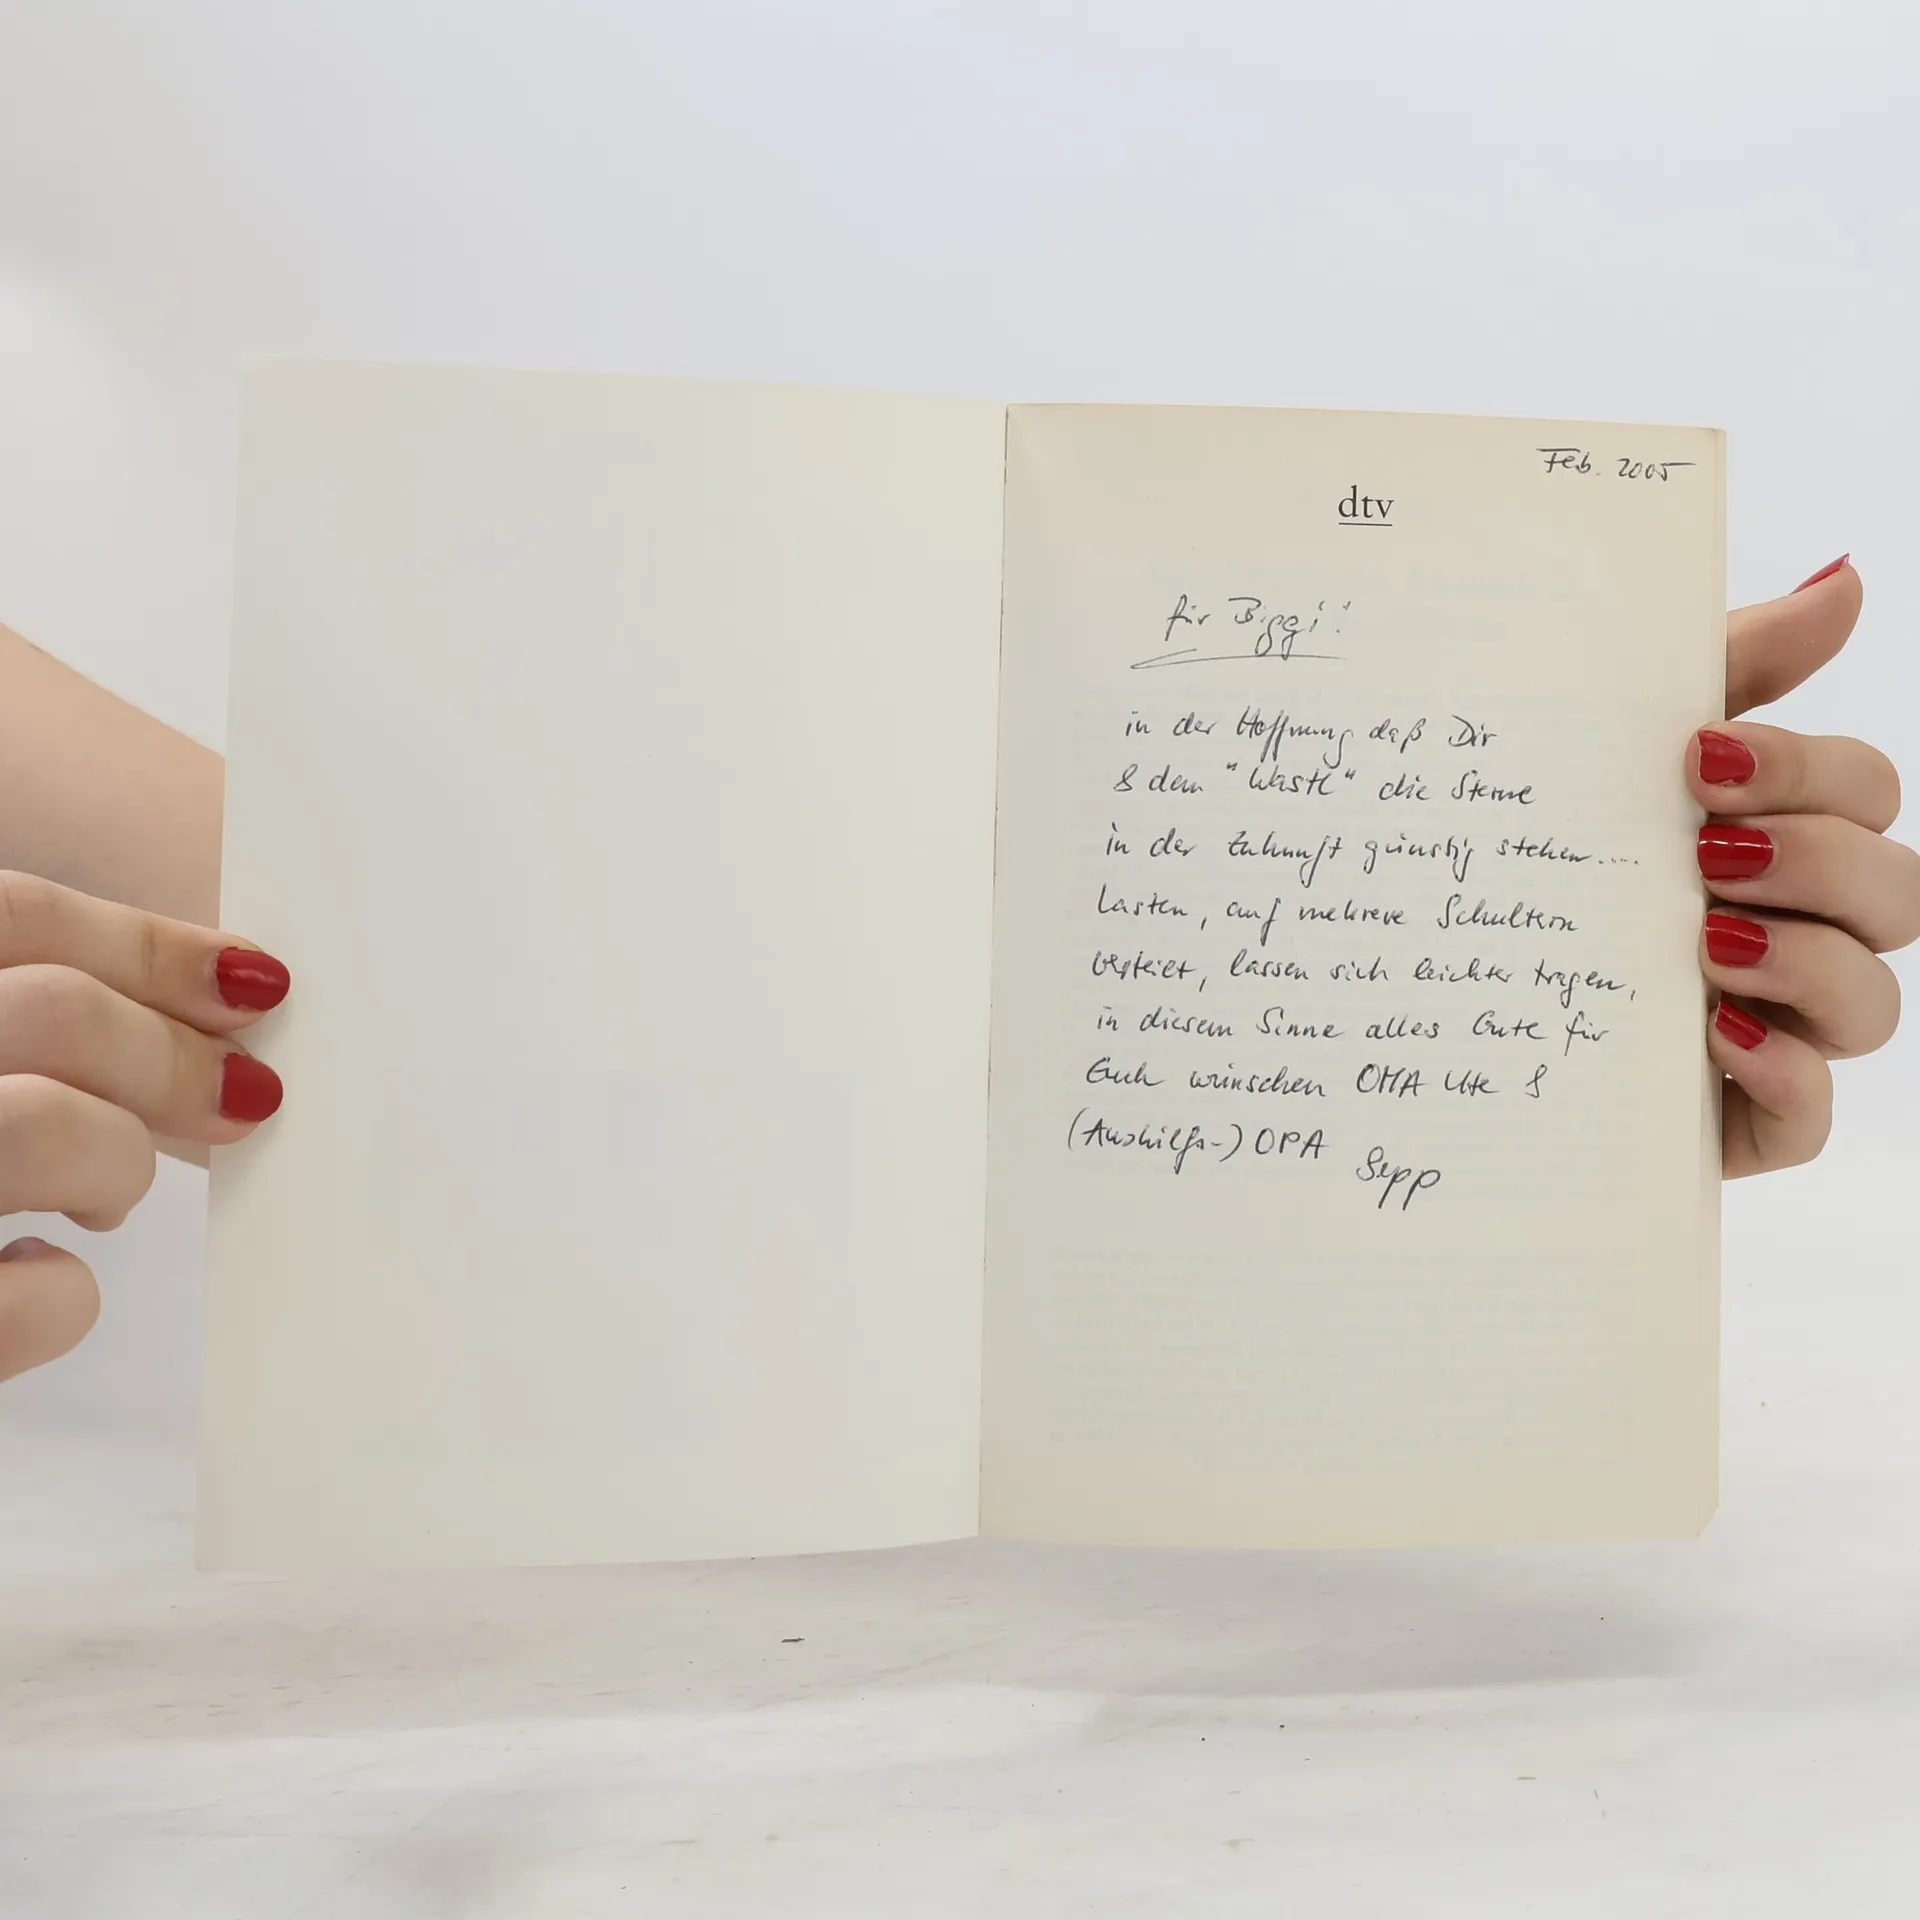 Feb. 2005
dtv
für Biggi!
in der Hoffnung daß Dir
& dem "Wastl" die Sterne
in der Zukunft günstig stehen....
Lasten, auf mehrere Schultern
verteilt, lassen sich leichter tragen,
in diesem Sinne alles Gute für
Euch wünschen OMA Ute &
(Aushilfs-) OPA
Sepp